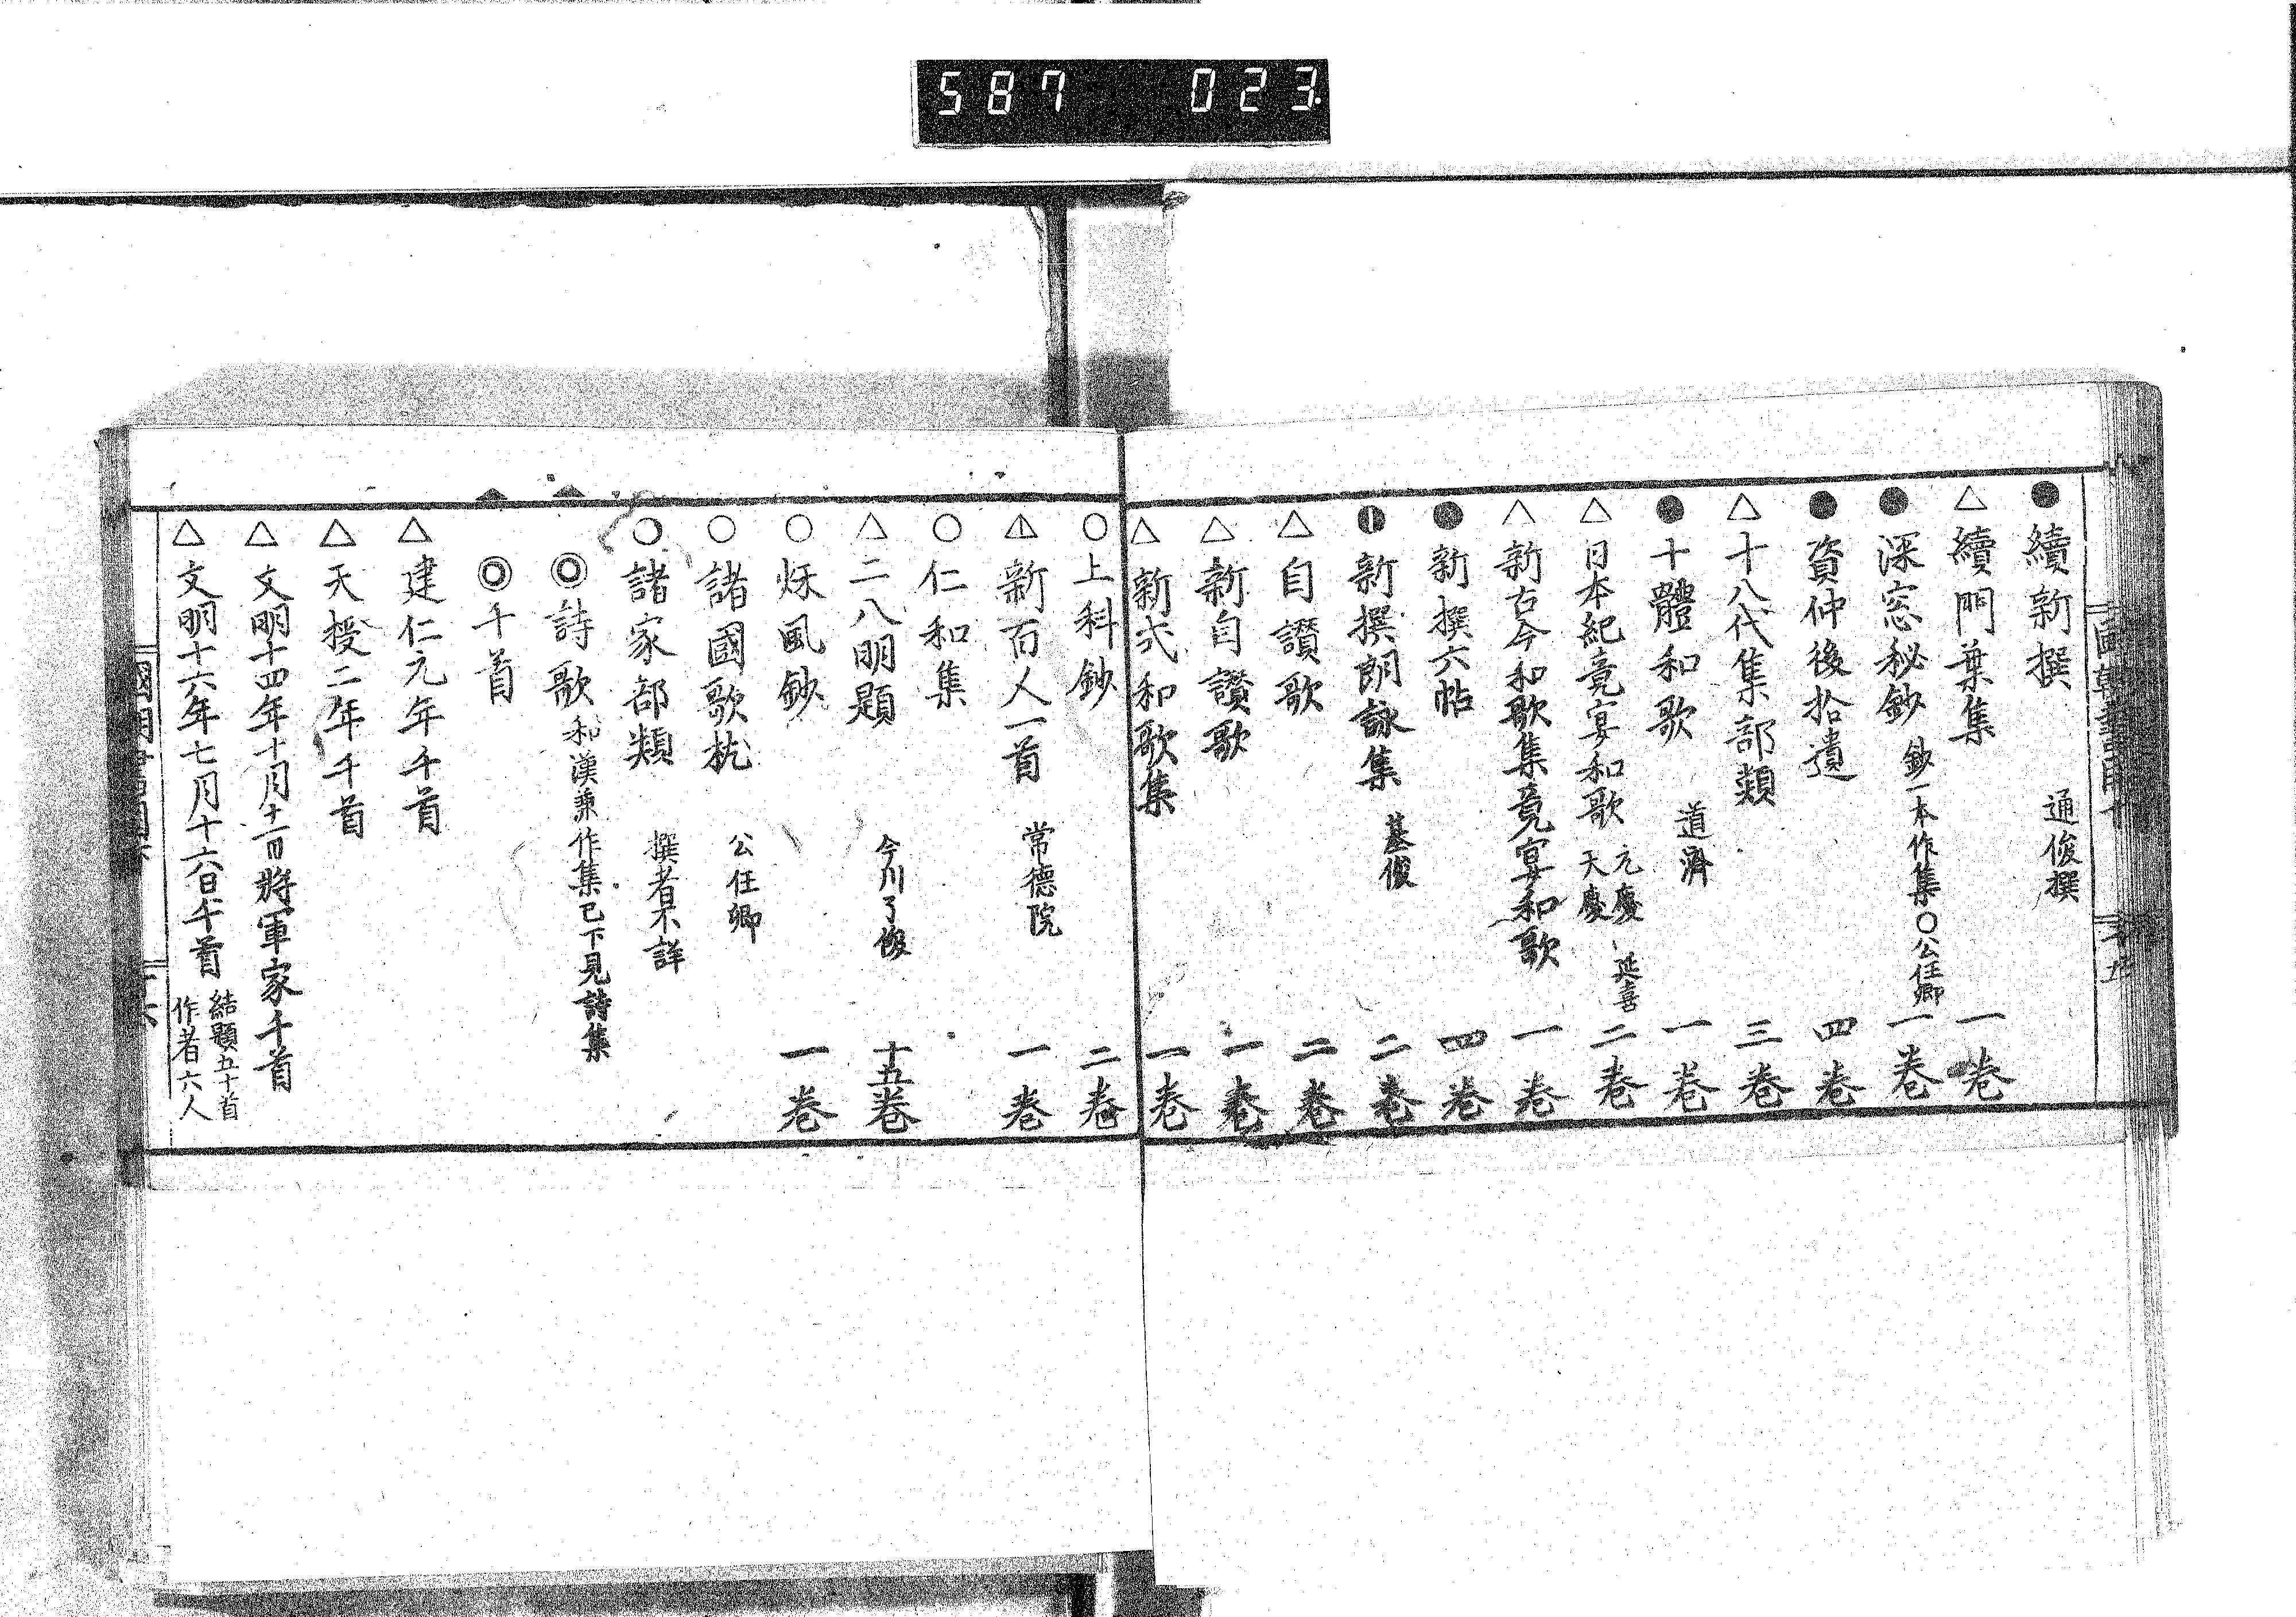 587 023
●續新撰 通俊撰
△續門葉集 一卷
●深窓秘鈔 鈔一本作集○公任卿 一卷
●資仲後拾遺 四卷
△十八代集部類 三卷
●十體和歌 道濟 一卷
△日本紀竟宴和歌 元慶 延喜 天慶 二卷
△新古今和歌集竟宴和歌 一卷
●新撰六帖 四卷
◐新撰朗詠集 基俊 二卷
△自讃歌 二卷
△新自讃歌 一卷
△新式和歌集 一卷
○上科鈔 二卷
△新百人一首 常德院 一卷
○仁和集
△二八明題 今川了俊 十五卷
○烁風鈔 一卷
○諸國歌枕 公任卿
○諸家部類 撰者不詳
◎詩歌 和漢兼作集已下見詩集
◎千首
△建仁元年千首
△天授二年千首
△文明十四年十月十一日將軍家千首
△文明十六年七月十六日千首 結題五十首 作者六人